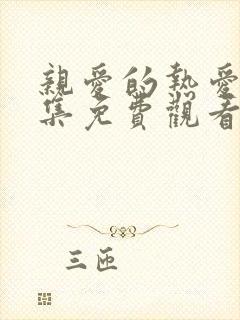 親愛的熱愛
集免費觀看
三匝